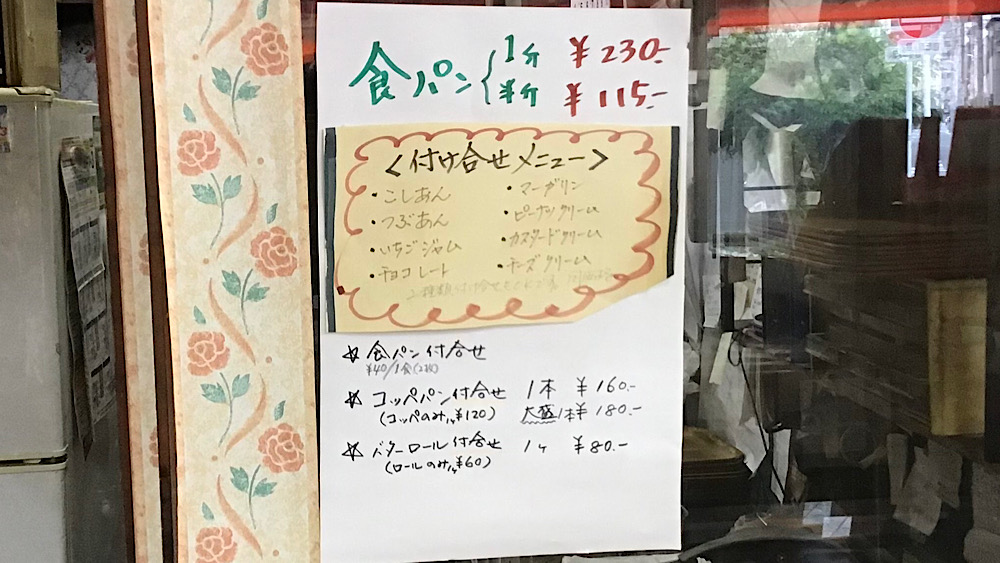 食パン 1斤 ¥230.-
半斤 ¥115.-
<付け合せメニュー>
・こしあん ・マーガリン
・つぶあん ・ピーナックリーム
・いちごジャム ・カスタードクリーム
・チョコレート ・チーズクリーム
2種類付け合せもOKです
☆ 食パン付合せ
¥40/1食(2枚)
☆ コッペパン付合せ 1本 ¥160.-
(コッペのみ ¥120) 大盛1本¥180.-
☆ バターロール付合せ 1ヶ ¥80.-
(ロールのみ ¥60)